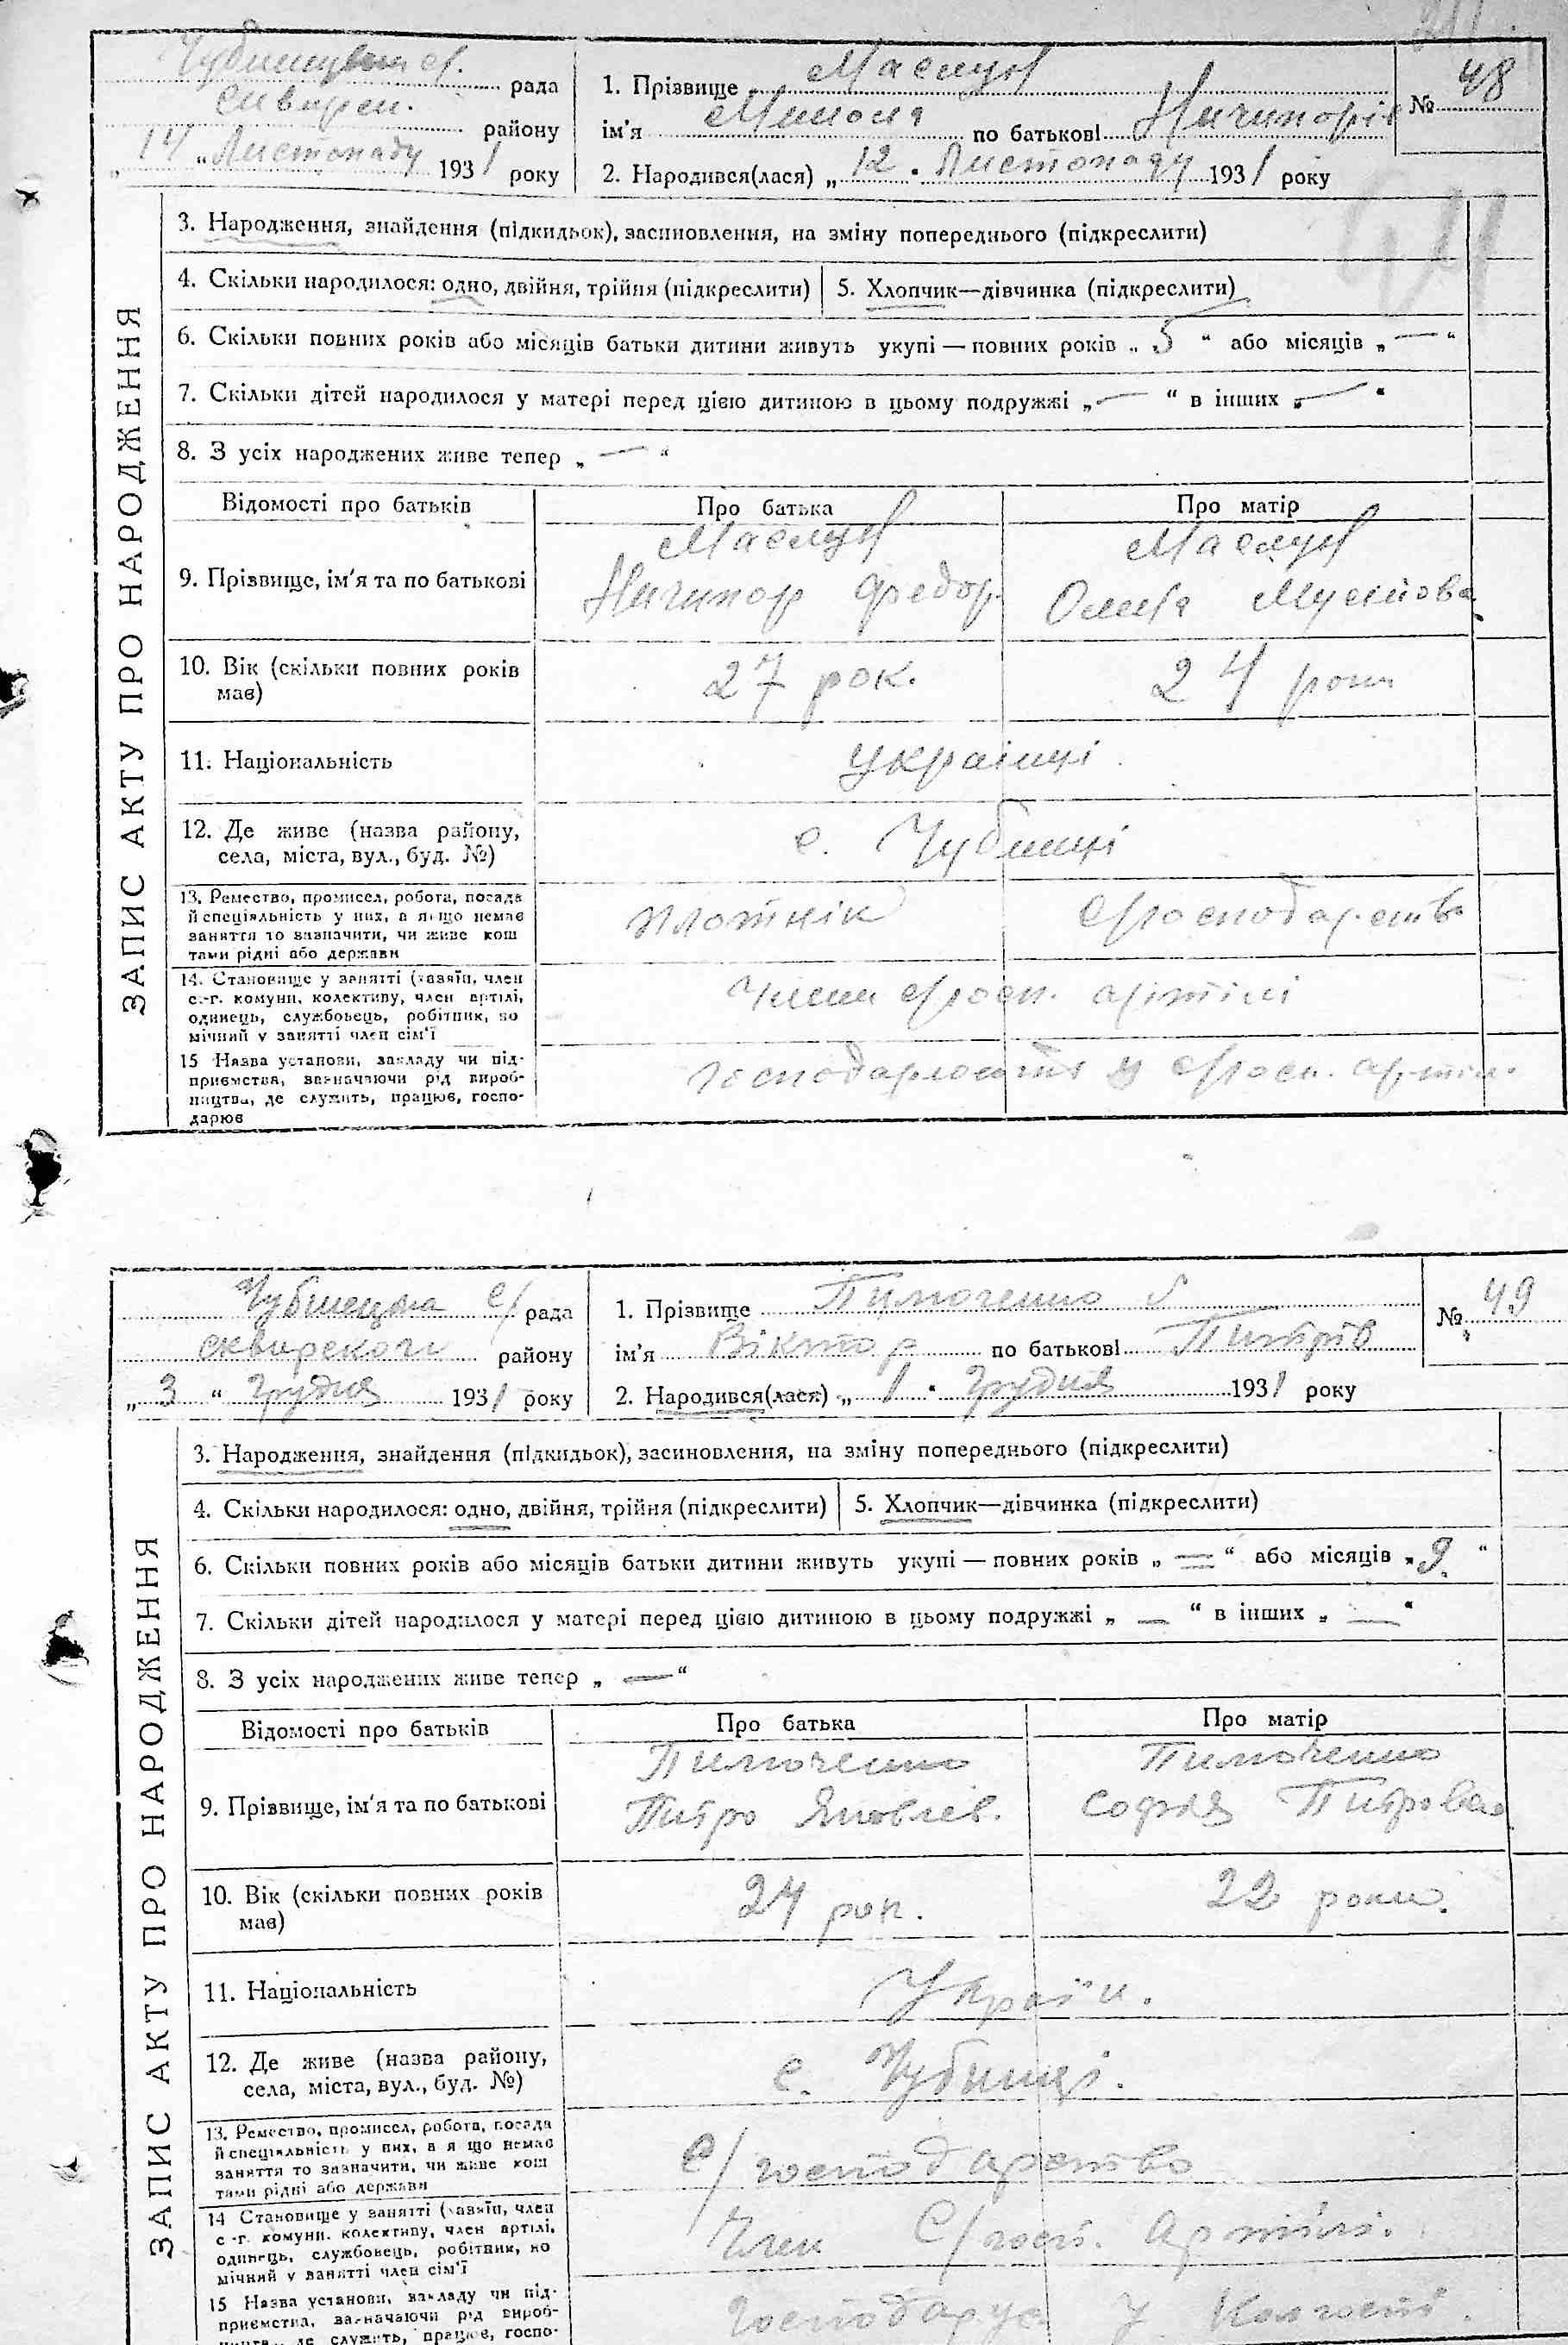 48
Чубинецька с/ рада
сквирськ. району
„14 „ Листопаду 1931 року
1. Прізвище Маслун
ім'я Микола по батькові Ничипорів
№ 48
2. Народився(лася) „ 12 " Листопаду 1931 року
3. Народження, знайдення (підкидьок), засиновлення, на зміну попереднього (підкреслити)
4. Скільки народилося: одно, двійня, трійня (підкреслити)
5. Хлопчик—дівчинка (підкреслити)
6. Скільки повних років або місяців батьки дитини живуть укупі — повних років „ 5 “ або місяців „ — “
7. Скільки дітей народилося у матері перед цією дитиною в цьому подружжі „ — “ в інших „ — “
8. З усіх народжених живе тепер „ — “
ЗАПИС АКТУ ПРО НАРОДЖЕННЯ
Відомості про батьків
Про батька
Про матір
9. Прізвище, ім'я та по батькові
Маслун
Ничипор Федор.
Маслун
Олена
10. Вік (скільки повних років
має)
27 рок.
24 роки
11. Національність
українці
12. Де живе (назва району,
села, міста, вул., буд. №)
с. Чубинці
13. Ремество, промисел, робота, посада
й спеціяльність у них, а якщо немає
заняття то зазначити, чи живе кош
тами рідні або держави
плотнік
с/господарств
14. Становище у занятті (хазяїн, член
с.-г. комуни, колективу, член артілі,
одинець, службовець, робітник, по
мічний у занятті член сім'ї
члени с/госп. артілі
15 Назва установи, закладу чи під-
приємства, зазначаючи рід вироб-
ництва, де служить, працює, госпо-
дарює
у с/госп. артіл.
Чубинецька с/ рада
сквирського району
„ 3 “ Грудня 1931 року
1. Прізвище Пимоченко
ім'я Віктор по батькові Питрів
№ 49
2. Народився(лася) „ 1 " Грудня 1931 року
3. Народження, знайдення (підкидьок), засиновлення, на зміну попереднього (підкреслити)
4. Скільки народилося: одно, двійня, трійня (підкреслити)
5. Хлопчик—дівчинка (підкреслити)
6. Скільки повних років або місяців батьки дитини живуть укупі — повних років „ — “ або місяців „ 9 “
7. Скільки дітей народилося у матері перед цією дитиною в цьому подружжі „ — “ в інших „ — “
8. З усіх народжених живе тепер „ — “
ЗАПИС АКТУ ПРО НАРОДЖЕННЯ
Відомості про батьків
Про батька
Про матір
9. Прізвище, ім'я та по батькові
Пимоченко
Питро Яковлев.
Пимоченко
Софія Питрова
10. Вік (скільки повних років
має)
24 рок.
22 роки.
11. Національність
Україн.
12. Де живе (назва району,
села, міста, вул., буд. №)
с. Чубинці.
13. Ремество, промисел, робота, посада
й спеціяльність у них, а якщо немає
заняття то зазначити, чи живе кош
тами рідні або держави
С/господарство
14 Становище у занятті (хазяїн, член
с -г. комуни, колективу, член артілі,
одинець, службовець, робітник, по
мічний у занятті член сім'ї
Член С/госп. Артілі.
15 Назва установи, закладу чи під-
приємства, зазначаючи рід вироб-
ництва, де служить, працює, госпо-
Господарує у Колгоспі.